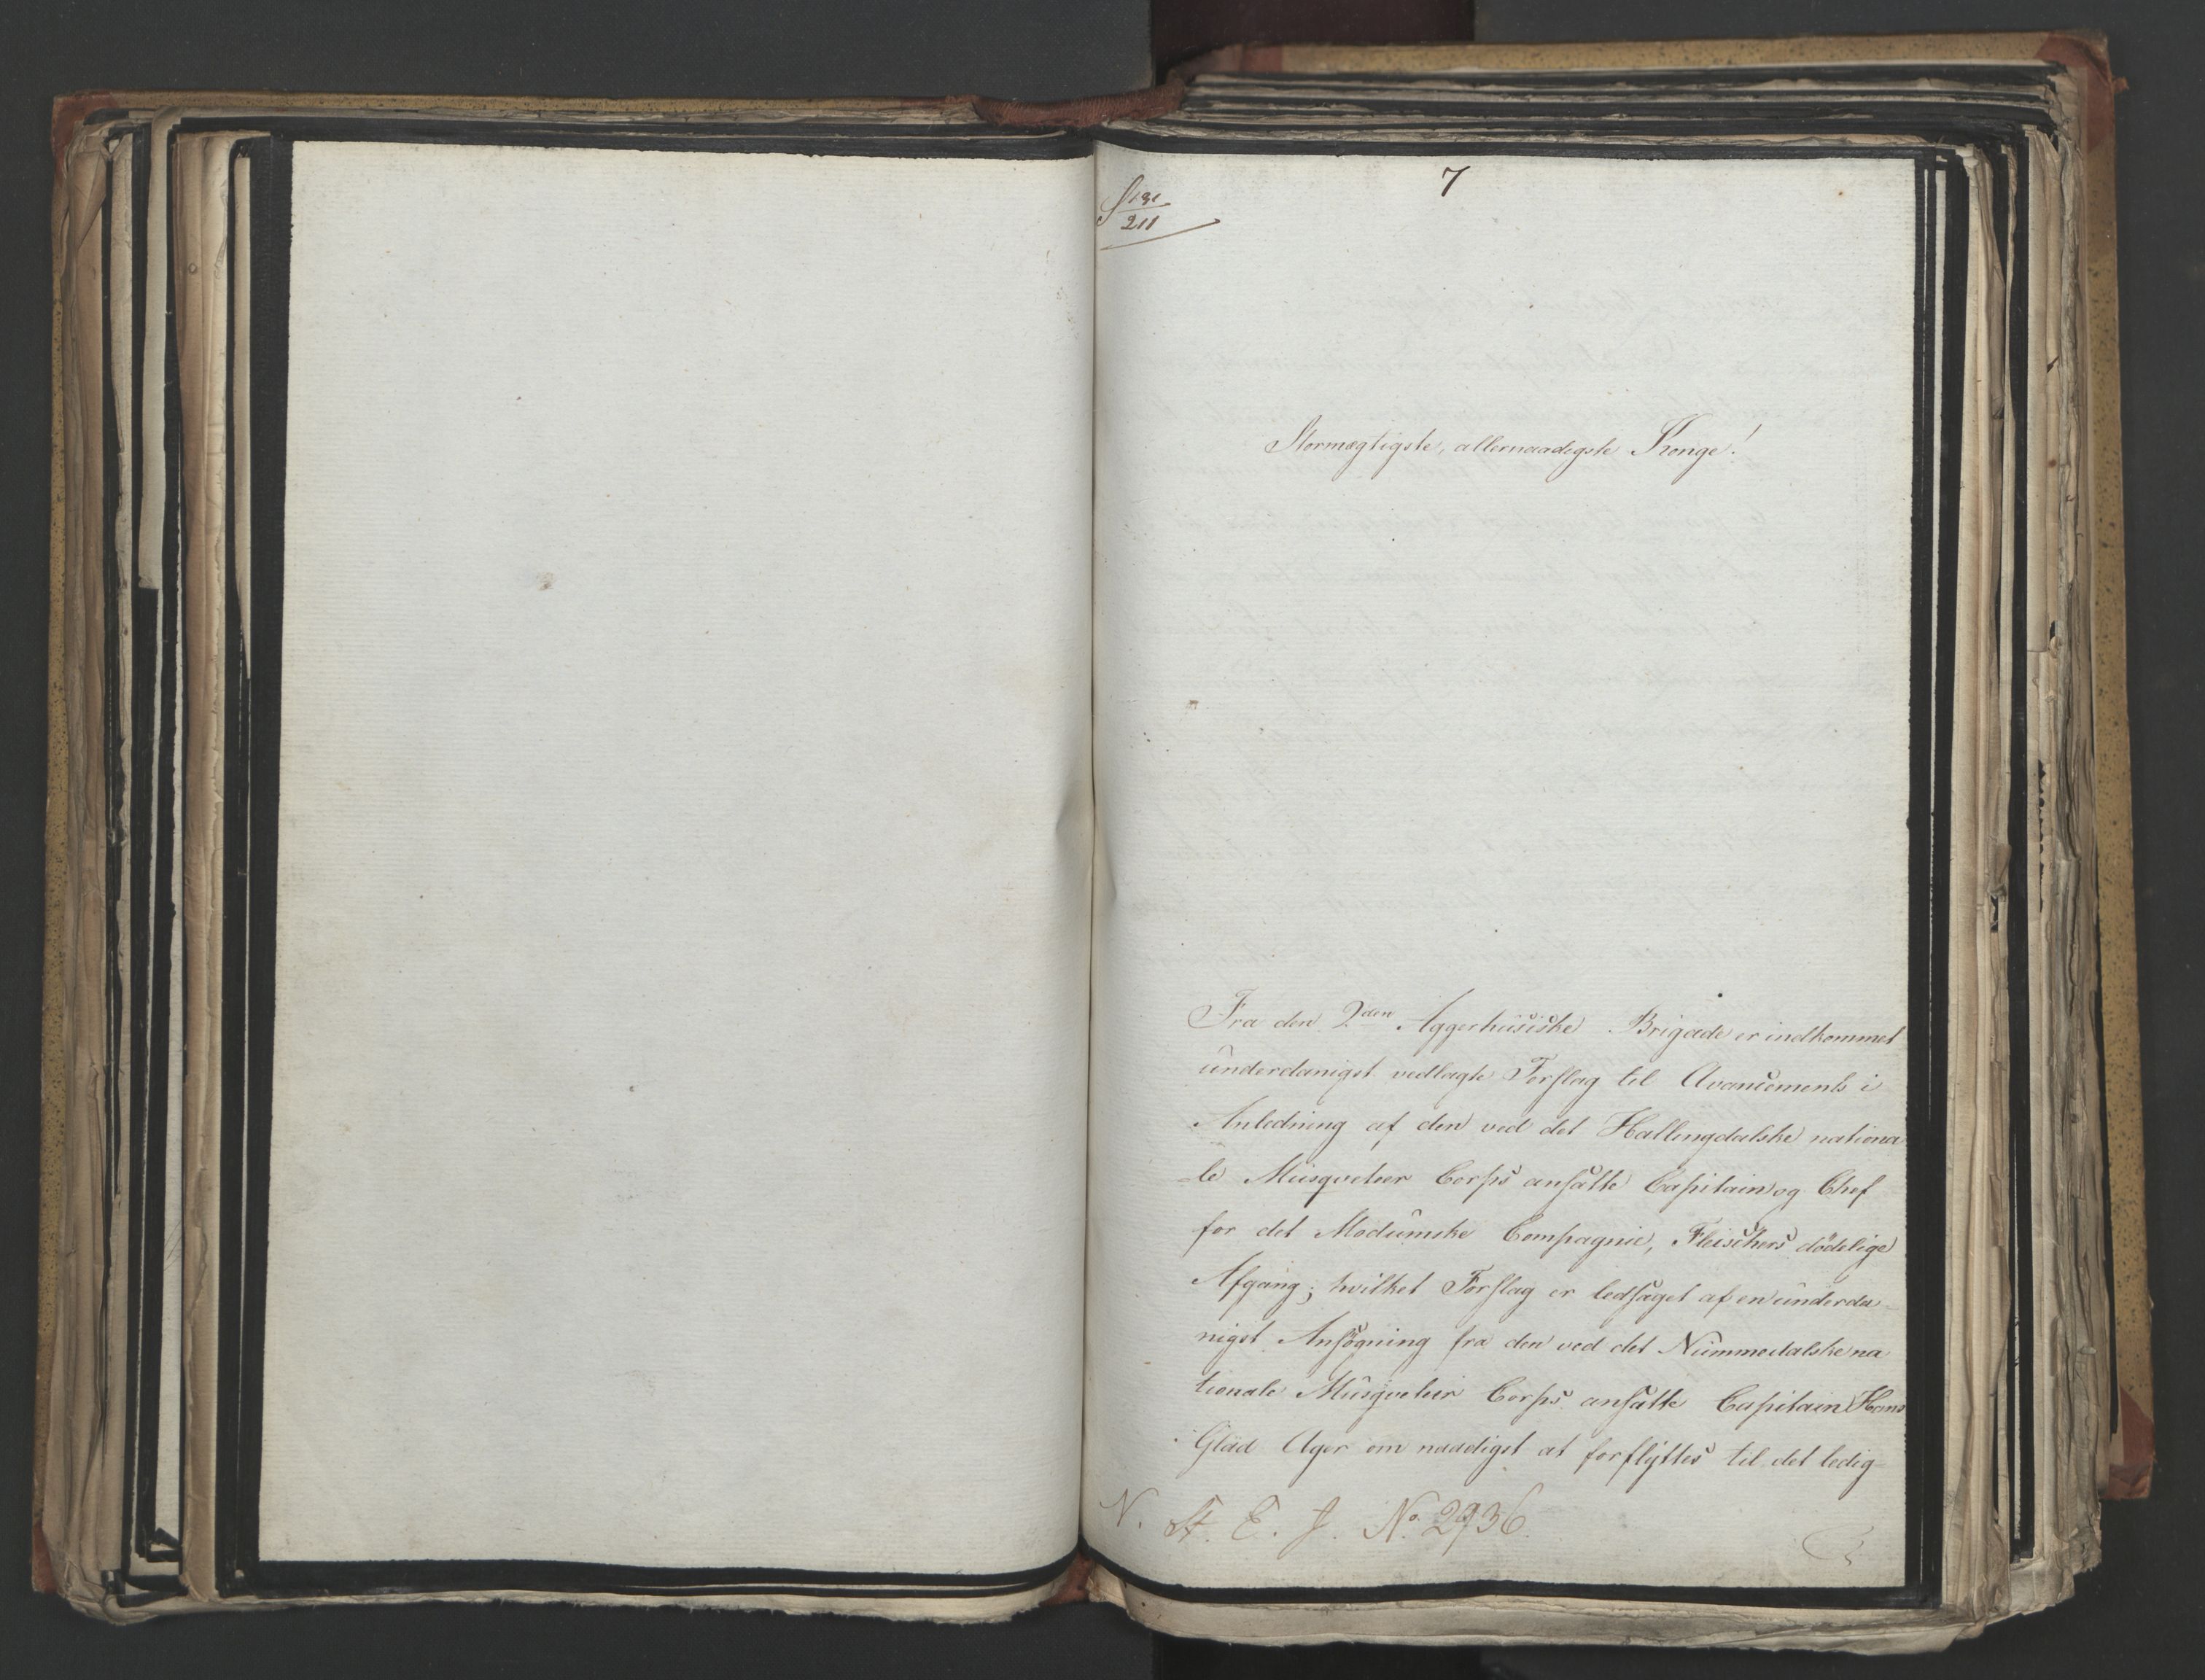 7
S 131
211
Stormægtigste, allernaadigste Konge!
Fra den 2den Aggerhusiske Brigade er indkommet
underdanigst vedlagte Forslag til Avancements i
Anledning af den ved det Hallingdalske nationa
-le Musqveteer Corps ansatte Capitain og Chef
for det Modumske Compagnie, Fleischers dødelige
Afgang; hvilket Forslag er ledsaget af en underda-
nigst Ansøgning fra den ved det Nummedalske na
tionale Musqveteir Corps ansatte Capitain Hans
Glad Ager om naadigst at forflyttes til det ledig-
N. St. E. J. No. 2936.